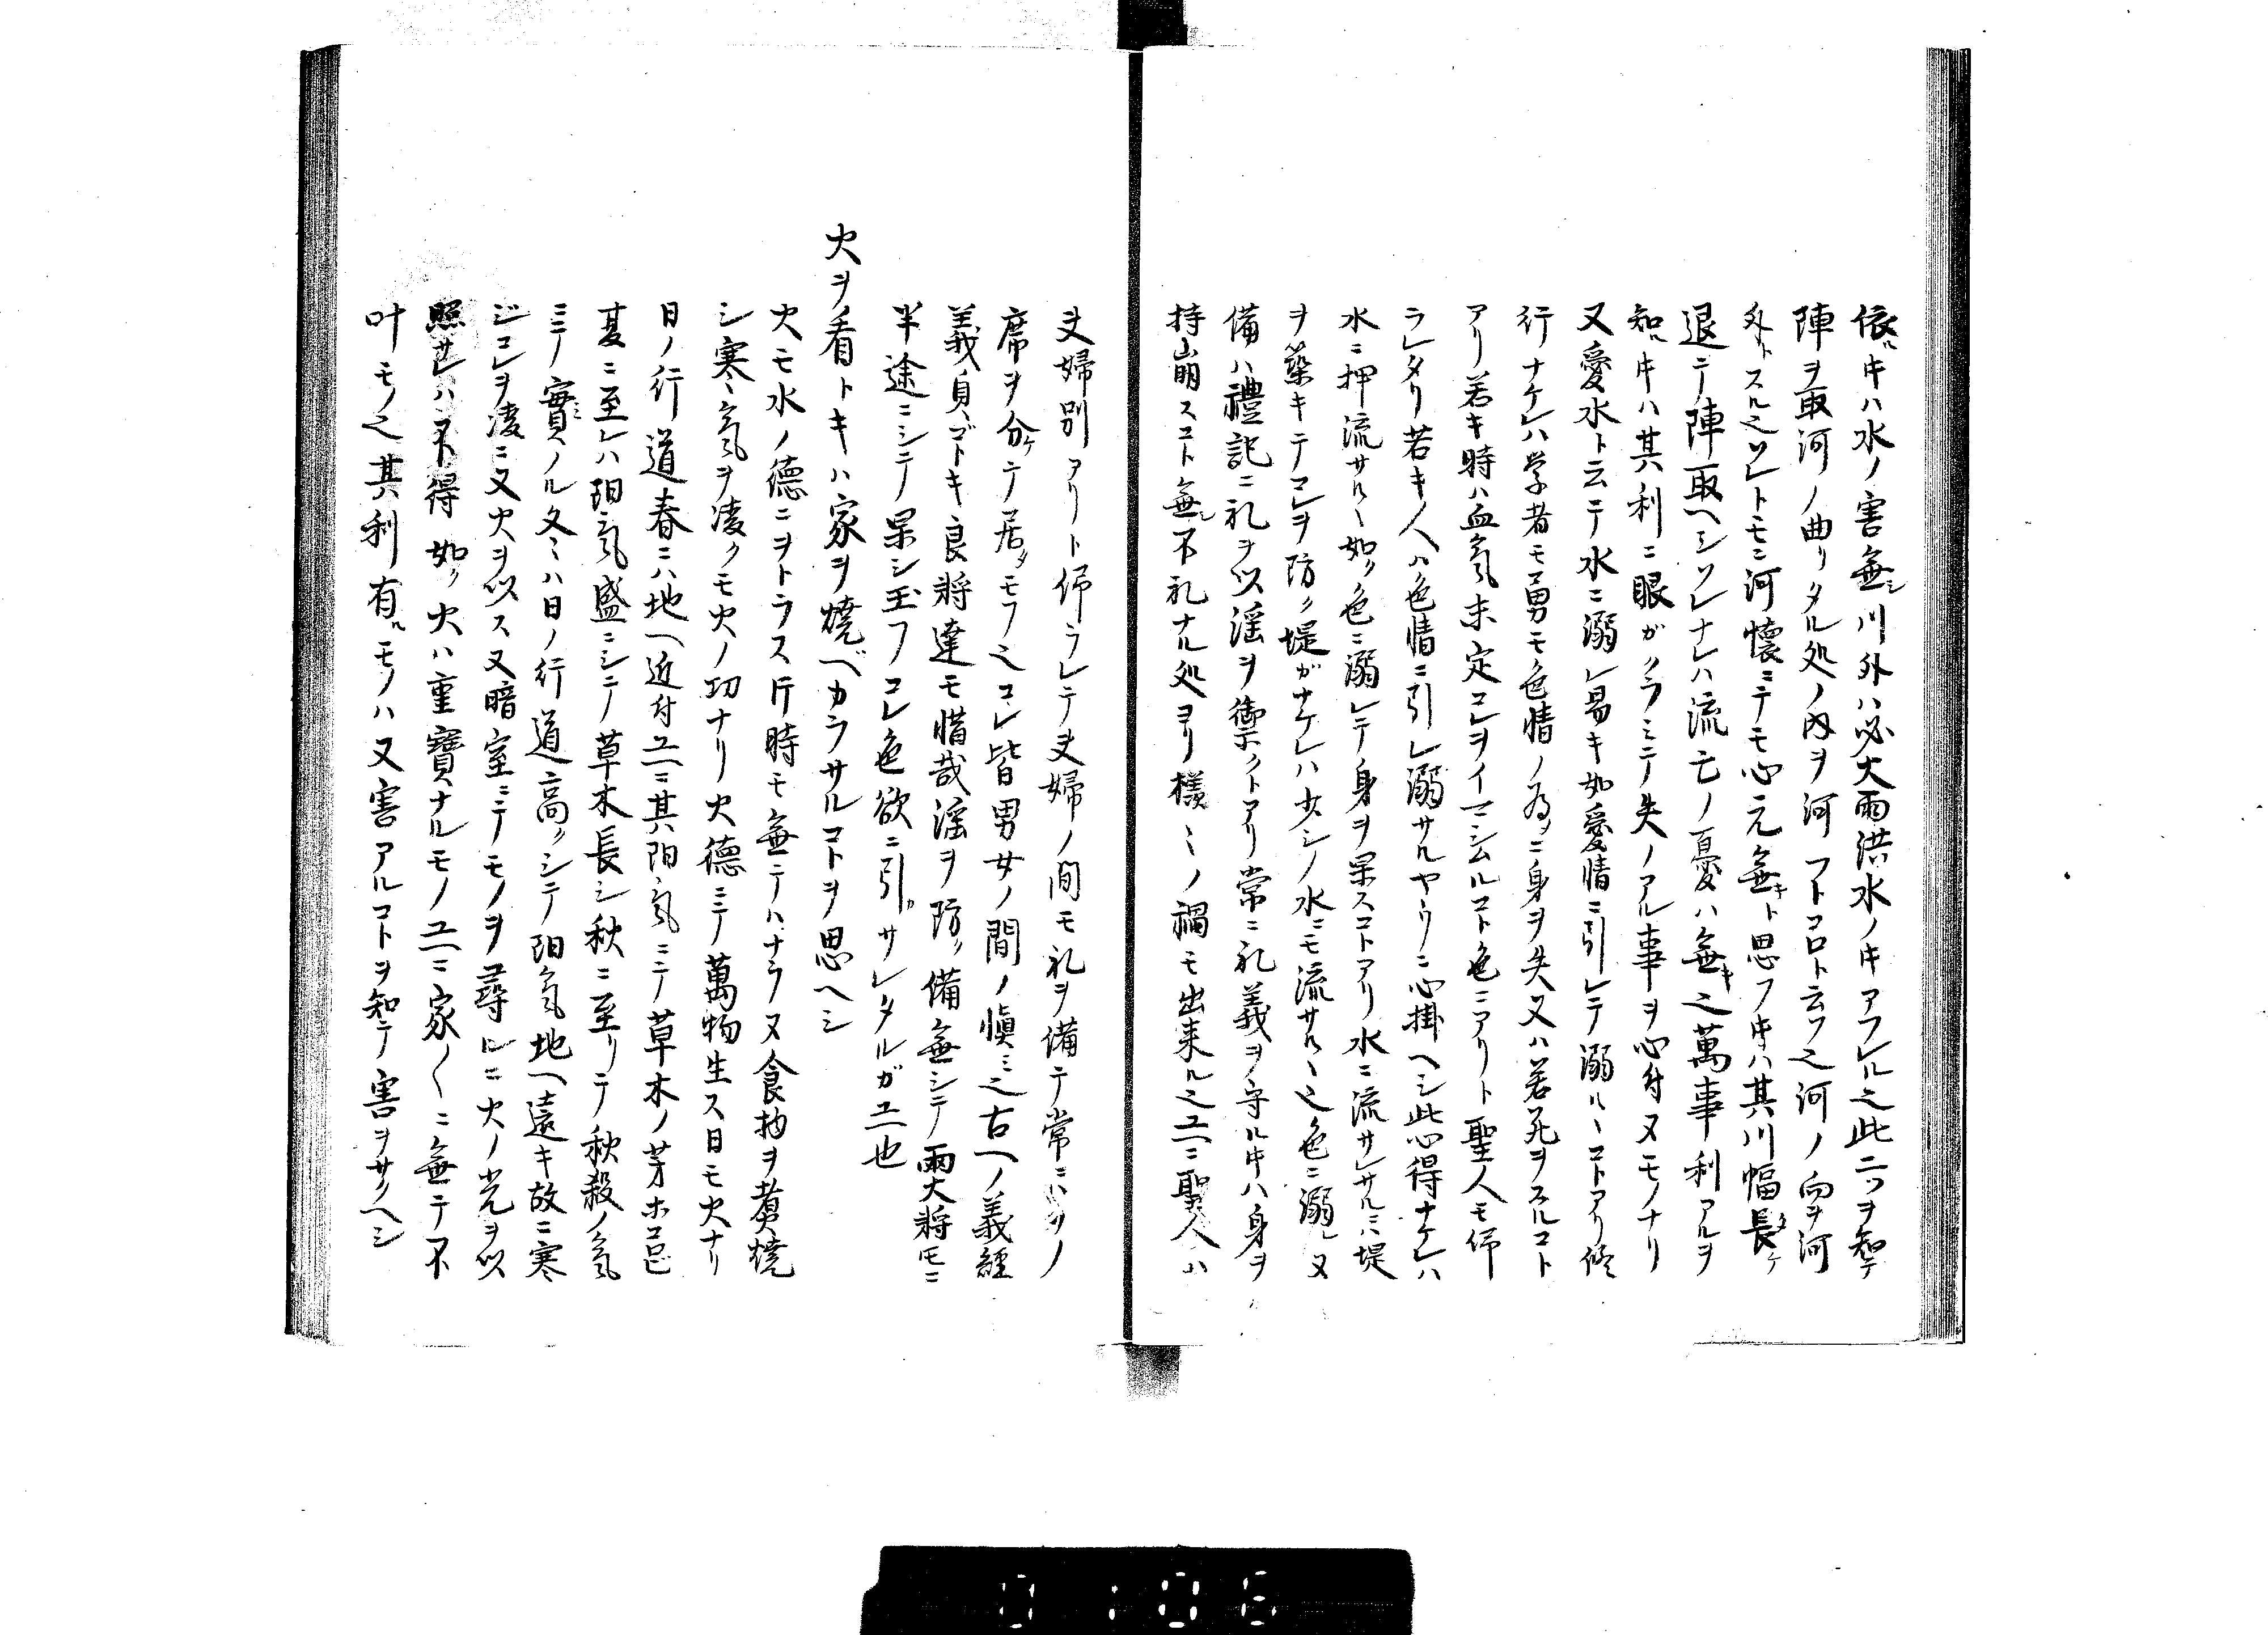 依ル㐧ハ水ノ害無シ川外ハ必大雨洪水ノ㐧アフレル之此ニツヲ知テ
陣ヲ取河ノ曲リタル処ノ内ヲ河フトコロト云フ之河ノ向ヲ河
外トスル之ソレトモニ河懐ニテモ心元無キト思フ㐧ハ其川幅長ケ
退テ陣取ヘシソレナレハ流モノ憂ハ無キ之萬事利アルヲ
知ル㐧ハ其利ニ眼ガクラミテ失ノアル事ヲ心付ヌモノナリ
又愛水ト云テ水ニ溺レ易キ如愛情ニ引レテ溺ルヽコトアリ修
行ナケレハ学者モ勇モ色情ノ為メニ身ヲ失又ハ若死ヲスルコト
アリ若キ時ハ血氣未定コレヲイマシムルコト色ニアリト聖人モ仰
ラレタリ若キ人ハ色情ニ引レ溺サルヤウニ心掛ヘシ此心得ナケレハ
水ニ押流サルヽ如ク色ニ溺レテ身ヲ果スコトアリ水ニ流サレサルニハ堤
ヲ築キテコレヲ防ク堤ガナケレハ少シノ水ニモ流サルヽ之色ニ溺レヌ
備ハ禮記ニ礼ヲ以淫ヲ禦クトアリ常ニ礼義ヲ守ル㐧ハ身ヲ
持崩スコト無シ不礼ナル処ヨリ様〻ノ禍モ出来ル之ユヘニ聖人ハ
夫婦別アリト仰ラレテ夫婦ノ間モ礼ヲ備テ常ニハソノ
席ヲ分ケテ居タモフ之コレ皆男女ノ間ノ慎ミ之古ヘノ義經
義貞ゴトキ良将達モ惜哉淫ヲ防ク備無シテ両大将モニ
半途ニシテ果シ玉フコレ色欲ニ引カサレタルガユヘ也
火ヲ看トキハ家ヲ焼ベカラサルコトヲ思ヘシ
火モ水ノ徳ニヲトラス片時モ無テハナラヌ食物ヲ煑焼
シ寒氣ヲ凌クモ火ノ功ナリ火徳ニテ萬物生ス日モ火ナリ
日ノ行道春ニハ地ヘ近付ユヘニ其陽氣ニテ草木ノ芽ホコロビ
夏ニ至レハ陽氣盛ニシテ草木長シ秋ニ至リテ秋殺ノ氣
ニテ實ノル冬ハ日ノ行道高クシテ陽氣地ヘ遠キ故ニ寒
ジコレヲ凌ニ又火ヲ以ス又暗室ニテモノヲ尋ルニ火ノ光ヲ以
照サレハ不得如ク火ハ重寶ナルモノユヘニ家〱ニ無テ不
叶モノ之其利有ルモノハ又害アルコトヲ知テ害ヲサクヘシ